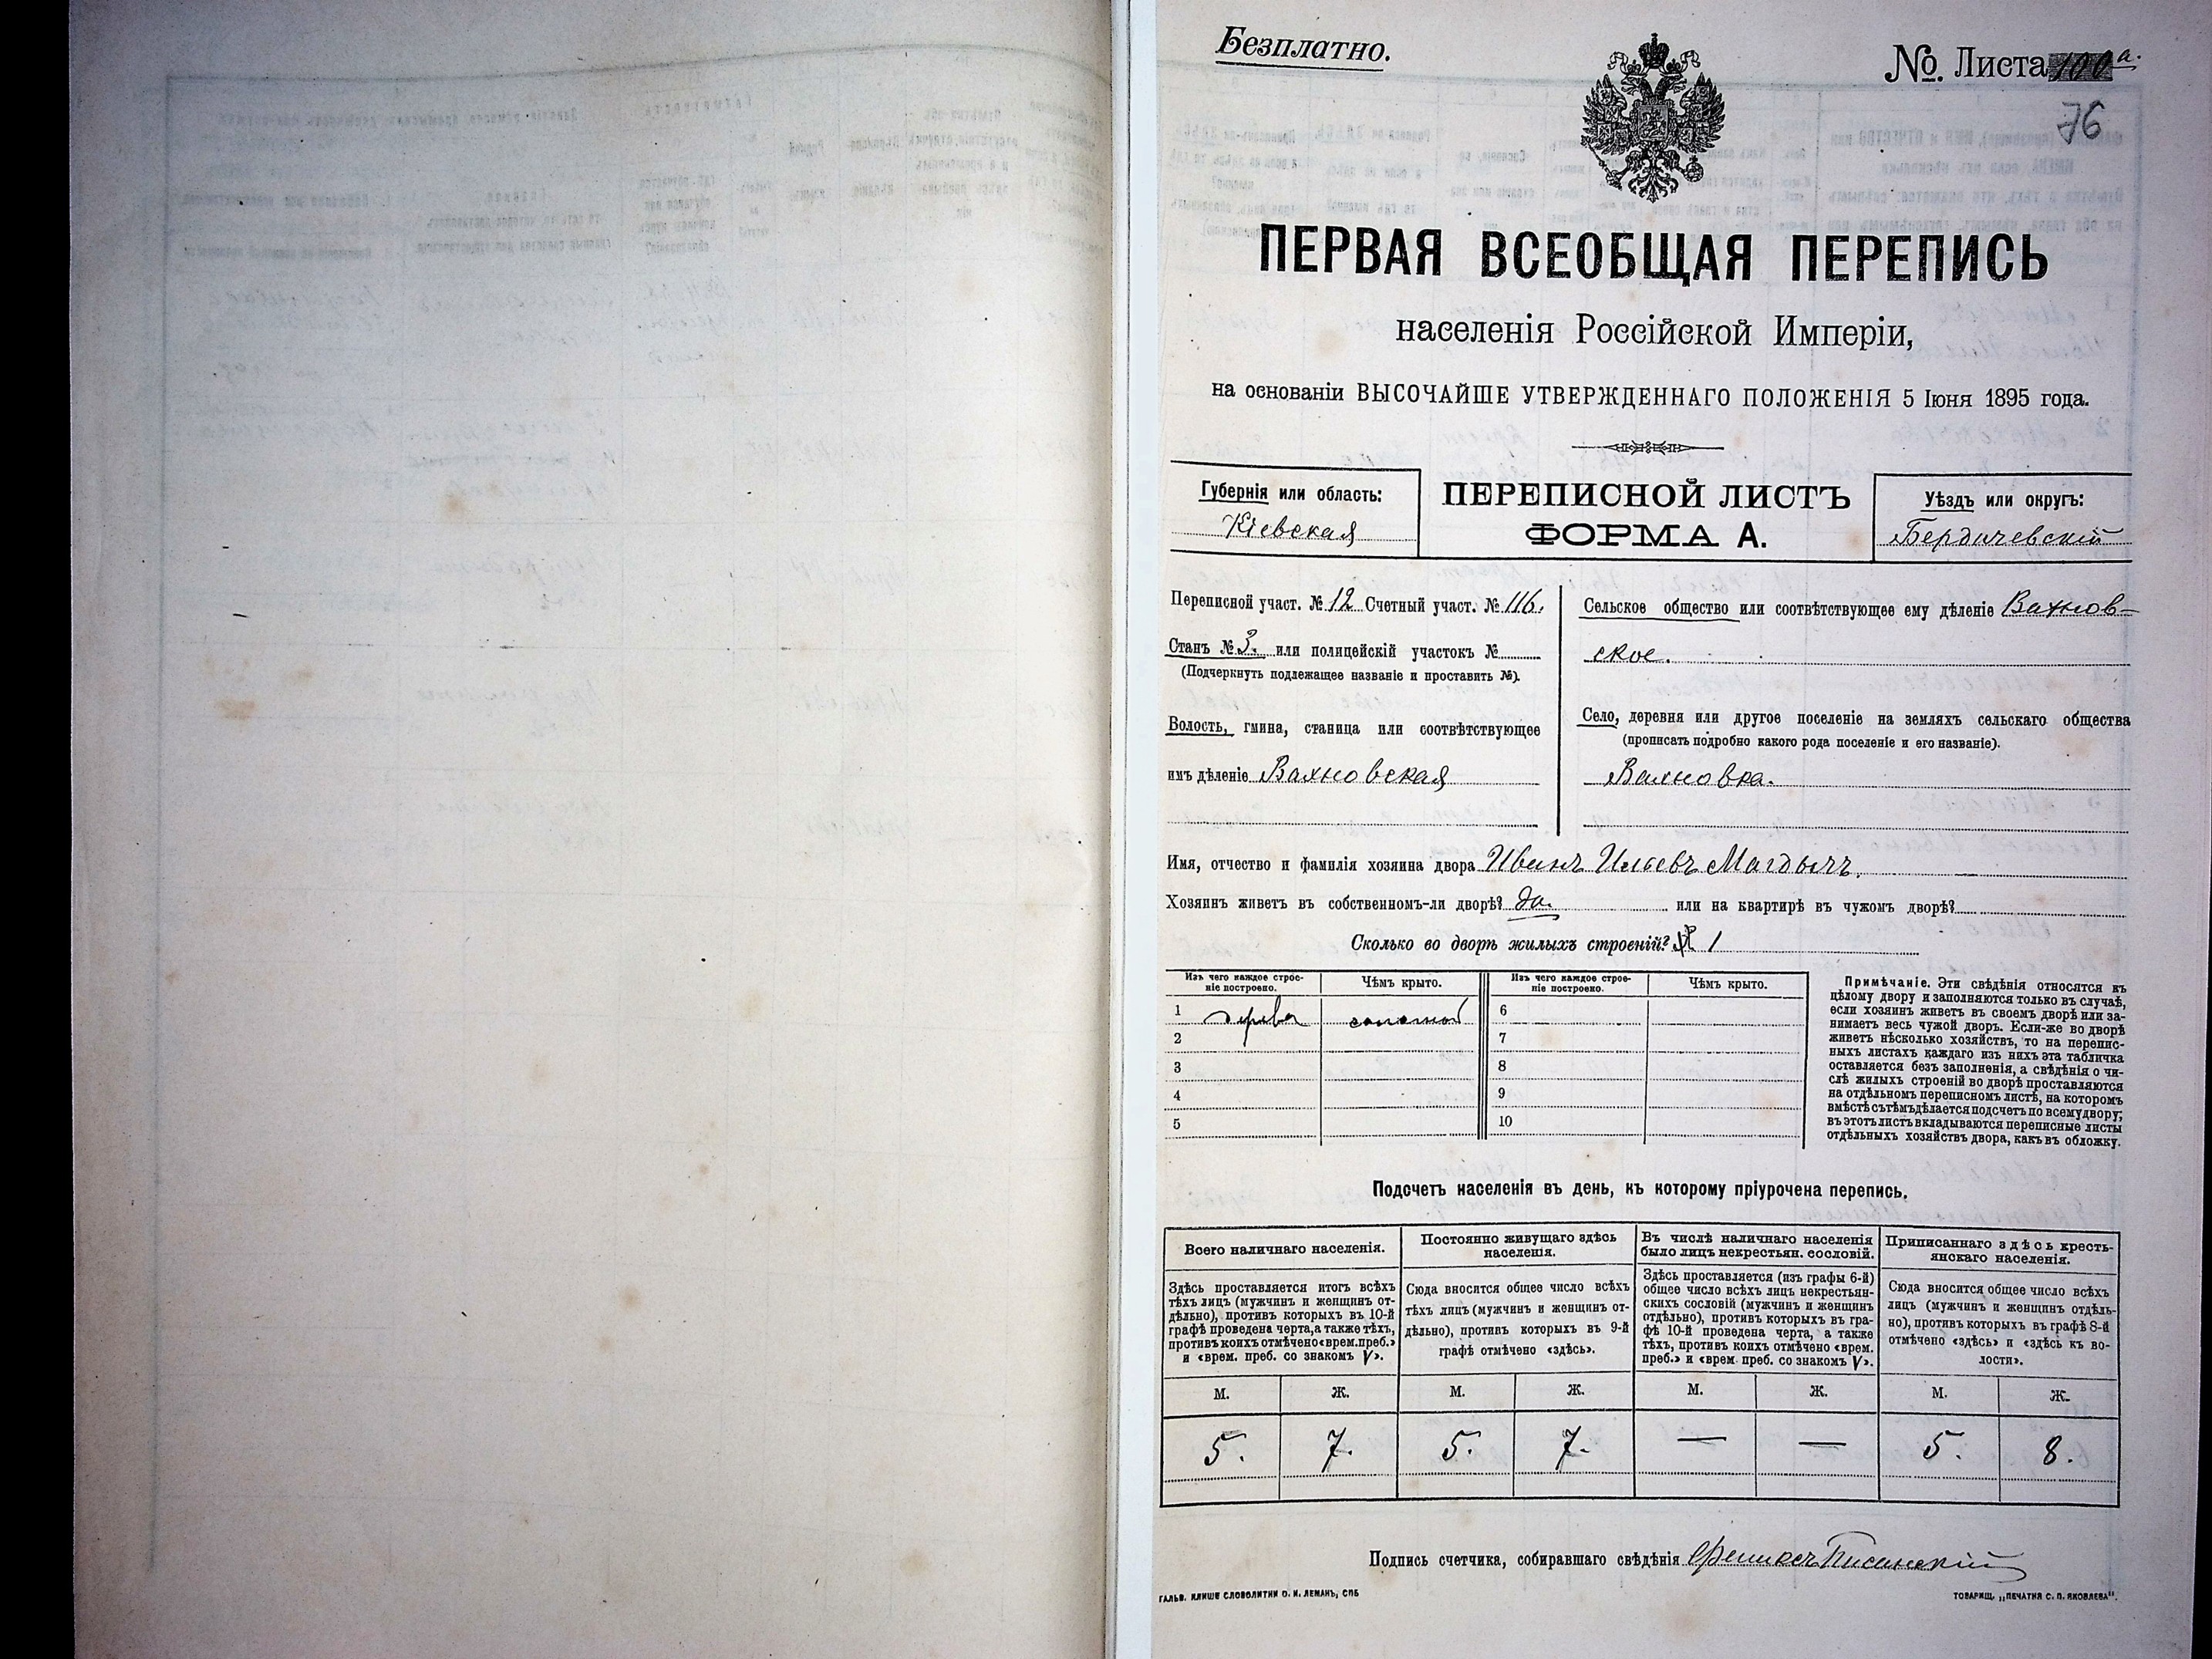 Безплатно.
№. Листа 100 а.
76
ПЕРВАЯ ВСЕОБЩАЯ ПЕРЕПИСЬ
населенія Россійской Имперіи,
на основаніи ВЫСОЧАЙШЕ УТВЕРЖДЕННАГО ПОЛОЖЕНІЯ 5 Іюня 1895 года.
Губернія или область:
Кіевская
ПЕРЕПИСНОЙ ЛИСТЪ
ФОРМА А.
Уѣздъ или округъ:
Бердичевскій
Переписной участ. № 12 Счетный участ. № 116.
Станъ № 3. или полицейскій участокъ №
(Подчеркнуть подлежащее названіе и проставить №).
Волость, гмина, станица или соотвѣтствующее
имъ дѣленіе Вахновская
Сельское общество или соотвѣтствующее ему дѣленіе Вахнов-
ское.
Село, деревня или другое поселеніе на земляхъ сельскаго общества
(прописать подробно какого рода поселеніе и его названіе).
Вахновка.
Имя, отчество и фамилія хозяина двора Иванъ Ильевъ Магдычъ.
Хозяинъ живетъ въ собственномъ-ли дворѣ? да. или на квартирѣ въ чужомъ дворѣ?
Сколько во дворѣ жилыхъ строеній? 1
Изъ чего каждое строе-
ніе построено.
Чѣмъ крыто.
Изъ чего каждое строе-
ніе построено.
Чѣмъ крыто.
1 дерева соломой 6
2 7
3 8
4 9
5 10
Примѣчаніе. Эти свѣдѣнія относятся къ
цѣлому двору и заполняются только въ случаѣ,
если хозяинъ живетъ въ своемъ дворѣ или за-
нимаетъ весь чужой дворъ. Если-же во дворѣ
живетъ нѣсколько хозяйствъ, то на перепис-
ныхъ листахъ каждаго изъ нихъ эта табличка
оставляется безъ заполненія, а свѣдѣнія о чи-
слѣ жилыхъ строеній во дворѣ проставляются
на отдѣльномъ переписномъ листѣ, на которомъ
вмѣстѣ съ тѣмъ дѣлается подсчетъ по всему двору;
въ этотъ листъ вкладываются переписные листы
отдѣльныхъ хозяйствъ двора, какъ въ обложку.
Подсчетъ населенія въ день, къ которому пріурочена перепись.
Всего наличнаго населенія.
Здѣсь проставляется итогъ всѣхъ
тѣхъ лицъ (мужчинъ и женщинъ от-
дѣльно), противъ которыхъ въ 10-й
графѣ проведена черта, а также тѣхъ,
противъ коихъ отмѣчено «врем. преб.»
и «врем. преб. со знакомъ V».
Постоянно живущаго здѣсь
населенія.
Сюда вносится общее число всѣхъ
тѣхъ лицъ (мужчинъ и женщинъ от-
дѣльно), противъ которыхъ въ 9-й
графѣ отмѣчено «здѣсь».
Въ числѣ наличнаго населенія
было лицъ некрестьян. сословій.
Здѣсь проставляется (изъ графы 6-й)
общее число всѣхъ лицъ некрестьян-
скихъ сословій (мужчинъ и женщинъ
отдѣльно), противъ которыхъ въ гра-
фѣ 10-й проведена черта, а также
тѣхъ, противъ коихъ отмѣчено «врем.
преб.» и «врем. преб. со знакомъ V».
Приписаннаго здѣсь кресть-
янскаго населенія.
Сюда вносится общее число всѣхъ
лицъ (мужчинъ и женщинъ отдѣль-
но), противъ которыхъ въ графѣ 8-й
отмѣчено «здѣсь» и «здѣсь къ во-
лости».
М. Ж. М. Ж. М. Ж. М. Ж.
5. 7. 5. 7. — — 5. 8.
Подпись счетчика, собиравшаго свѣдѣнія Феликсъ Писанскій
ГАЛЬВ. КЛИШЕ СЛОВОЛИТНИ О. И. ЛЕМАНЪ, СПБ
ТОВАРИЩ. „ПЕЧАТНЯ С. П. ЯКОВЛЕВА“.